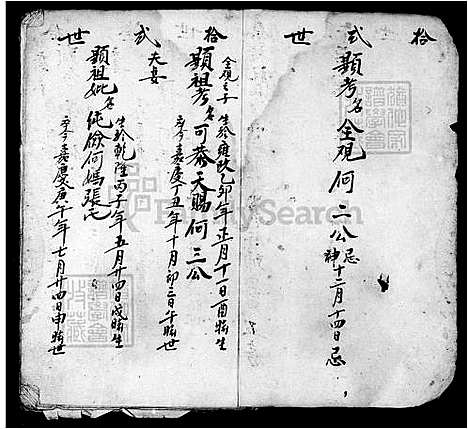 拾 弍 世
顯考名全覌何二公忌神十二月十四日忌
拾 弍 世
全覌之子
顯祖考名可恭天賜何三公
生於雍政乙卯年正月十一日酉時生
卒于嘉慶丁丑年十月卯三日午時世
夫妻
顯祖妣名純儉何媽張氏
生於乾隆丙子年五月廿四日戌時生
卒于嘉慶庚午年七月廿四日申時世
FamilySearch